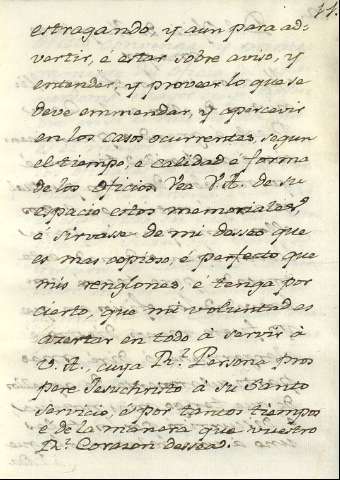 11.
estragando, y aun para ad-
vertir, é estar sobre aviso, y
entender, y proveer lo que se
deve emmendar, y apercevir
en los casos ocurrentes, segun
el tiempo, é calidad é forma
de los oficios Vea V.A. de su
espacio estos memoriales,
é sirvasse de mi desseo que
es mas copioso, é perfecto que
mis renglones, é tenga por
cierto, que mi voluntad es
azertar en todo à servir à
V.A., cuya Rl. Persona pros
pere Jesuchristo à su Santo
servicio, é por tantos tiempos
é de la manera que vuestro
Rl. Corazon dessea.